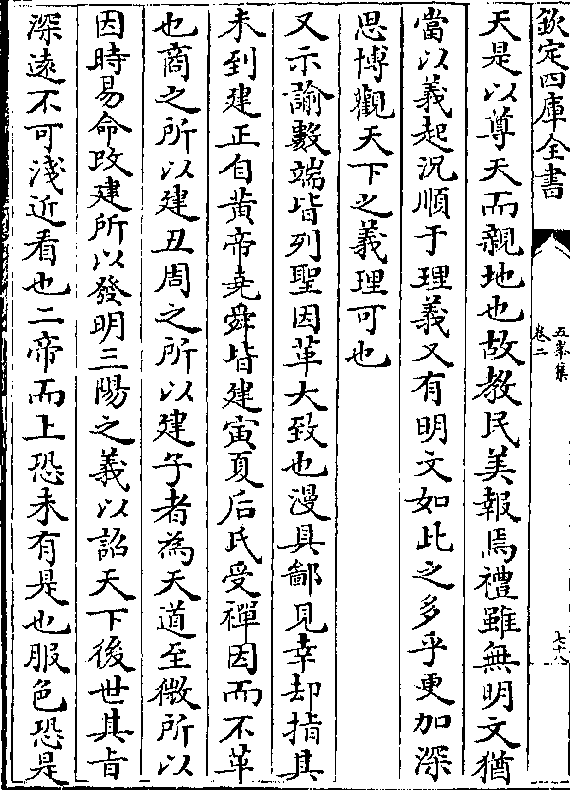 欽定四庫全書
五峯集
卷二
七十八
天是以尊天而親地也故教民美報焉禮雖無明文猶
當以義起況順于理義又有明文如此之多乎更加深
思博觀天下之義理可也
又示諭數端皆列聖因革大致也漫具鄙見幸却指其
未到建正自黄帝堯舜皆建寅夏后氏受禪因而不革
也商之所以建丑周之所以建子者為天道至微所以
因時易命改建所以發明三陽之義以詔天下後世其㫖
深遠不可淺近看也二帝而上恐未有是也服色恐是